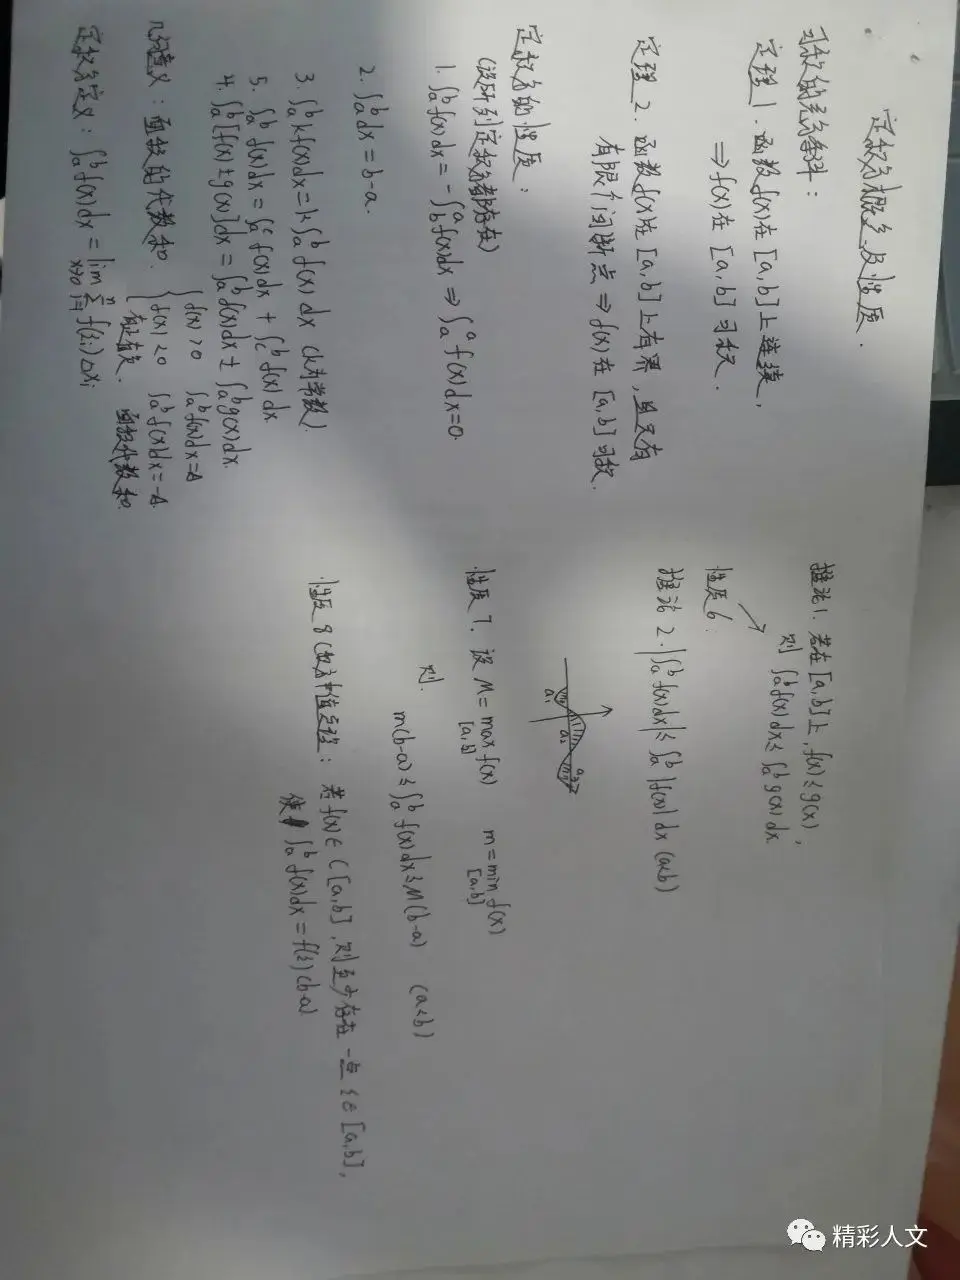 定积分概念及性质.
可积的充分条件:
定理1. 函数f(x)在[a,b]上连续,
⇒f(x)在[a,b]可积.
定理2. 函数f(x)在[a,b]上有界,且只有
有限个间断点⇒f(x)在[a,b]可积.
定积分的性质:
(设所列定积分都存在)
1. ∫_a^b f(x)dx = -∫_b^a f(x)dx ⇒ ∫_a^a f(x)dx=0.
2. ∫_a^b dx = b-a.
3. ∫_a^b kf(x)dx = k∫_a^b f(x)dx (k为常数)
5. ∫_a^b f(x)dx = ∫_a^c f(x)dx + ∫_c^b f(x)dx
4. ∫_a^b [f(x)±g(x)]dx = ∫_a^b f(x)dx ± ∫_a^b g(x)dx.
几何意义:面积的代数和.
f(x)>0 ∫_a^b f(x)dx=A
f(x)<0 ∫_a^b f(x)dx=-A
有正有负. 面积代数和
定积分定义: ∫_a^b f(x)dx = lim_{λ→0} Σ_{i=1}^n f(ξi)△xi
推论1. 若在[a,b]上,f(x)≤g(x),
则∫_a^b f(x)dx≤∫_a^b g(x)dx
性质6.
推论2. |∫_a^b f(x)dx|≤∫_a^b |f(x)|dx (a<b)
a1
a2
a3
性质7. 设M=max_{[a,b]} f(x) m=min_{[a,b]} f(x)
则.
m(b-a)≤∫_a^b f(x)dx≤M(b-a) (a<b)
性质8(积分中值定理: 若f(x)∈C[a,b],则至少存在一点ξ∈[a,b],
使∫_a^b f(x)dx=f(ξ)(b-a)
精彩人文